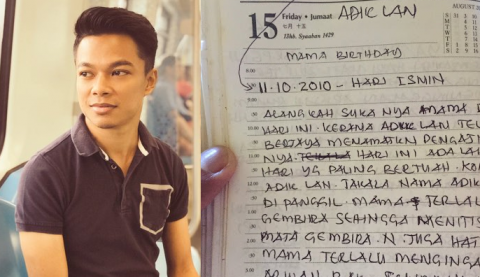 15 Friday • Jumaat
七月 十五
12hb. Syaaban 1429
ADIK LAN
AUGUST
MAMA BIRTHDAY
11.10.2010 – HARI ISNIN
ALANGKAH SUKA NYA MAMA
HARI INI. KERANA ADIK LAN TEL
BERJAYA MENAMATKAN PENGAJI
NYA. HARI INI ADALAH
HARI YG PALING BERTUAH.
ADIK LAN. TAKALA NAMA ADIK
DI PANGGIL. MAMA TERLALU
GEMBIRA SEHINGGA MENITIS
MATA GEMBIRA. N JUGA HAT
MAMA TERLALU MENGINGA